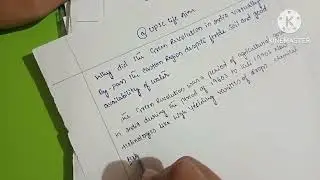 UPSC Life Aims
Why did the Green Revolution in India virtually
by-pass the eastern Region despite fertile soil and good
availability of water
The Green Revolution was a period of agricultural
in India during the period of 1960s to late 1970s New
technologies like high yielding varieties of crops, chemical
KINEMASTER